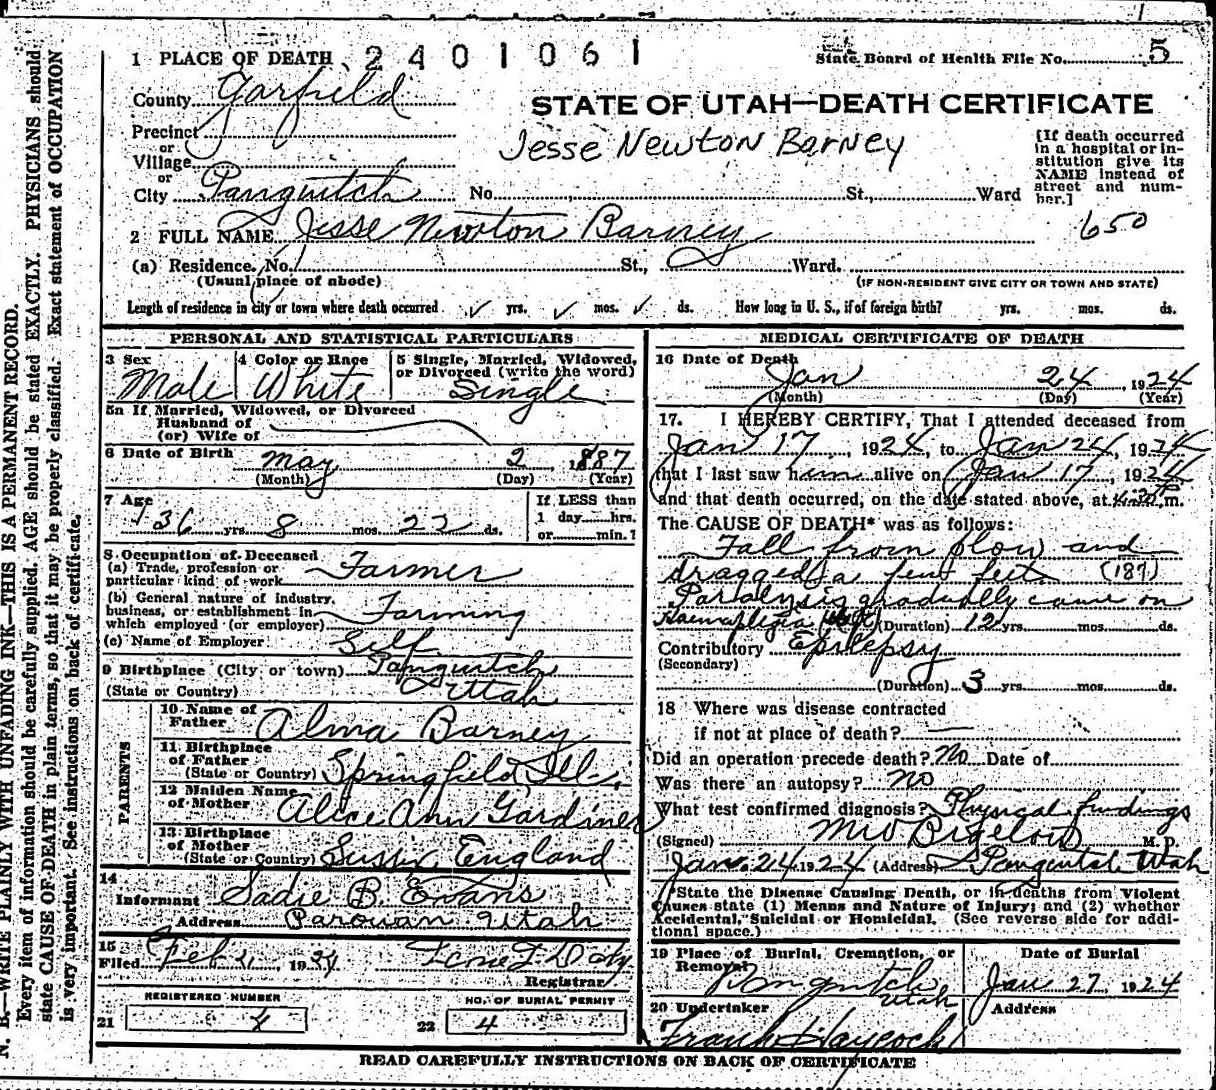 1 PLACE OF DEATH 2401061
State Board of Health File No. 5
County Garfield
STATE OF UTAH—DEATH CERTIFICATE
Precinct
or
Village
or
City Panguitch No. St., Ward
Jesse Newton Barney
[If death occurred in a hospital or in-
stitution give its
NAME instead of
street and num-
ber.]
650
2 FULL NAME Jesse Newton Barney
(a) Residence. No. St., Ward.
(Usual place of abode) (IF NON-RESIDENT GIVE CITY OR TOWN AND STATE)
Length of residence in city or town where death occurred ✓ yrs. ✓ mos. ✓ ds. How long in U. S., if of foreign birth? yrs. mos. ds.
PERSONAL AND STATISTICAL PARTICULARS
3 Sex Male
4 Color or Race White
5 Single, Married, Widowed,
or Divorced (write the word)
Single
5a If Married, Widowed, or Divorced
Husband of
(or) Wife of
6 Date of Birth May 2, 1887
(Month) (Day) (Year)
7 Age 36 yrs. 8 mos. 22 ds.
If LESS than
1 day hrs.
or min.?
8 Occupation of Deceased
(a) Trade, profession or
particular kind of work Farmer
(b) General nature of industry,
business, or establishment in
which employed (or employer) Farming
(c) Name of Employer Self
9 Birthplace (City or town) Panguitch
(State or Country) Utah
PARENTS
10 Name of
Father Alma Barney
11 Birthplace
of Father
(State or Country) Springfield, Ill.
12 Maiden Name
of Mother Alice Ann Gardiner
13 Birthplace
of Mother
(State or Country) Sussix, England
14
Informant Sadie B. Evans
Address Parowan Utah
15
Filed Feb 1924
Registrar
REGISTERED NUMBER
21
NO. OF BURIAL PERMIT
22 4
MEDICAL CERTIFICATE OF DEATH
16 Date of Death
Jan 24, 1924
(Month) (Day) (Year)
17. I HEREBY CERTIFY, That I attended deceased from
Jan 17, 1924, to Jan 24, 1924
that I last saw him alive on Jan 17, 1924
and that death occurred, on the date stated above, at m.
The CAUSE OF DEATH* was as follows:
Fall from plow and
dragged a few feet (187)
Paralysis gradually came on
(Duration) 12 yrs. mos. ds.
Contributory Epilepsy
(Secondary)
(Duration) 3 yrs. mos. ds.
18 Where was disease contracted
if not at place of death? —
Did an operation precede death? No Date of
Was there an autopsy? no
What test confirmed diagnosis? Physical findings
(Signed) Bigelow M. D.
Jan. 24 1924 (Address) Utah
*State the Disease Causing Death, or in deaths from Violent
Causes state (1) Means and Nature of Injury; and (2) whether
Accidental, Suicidal or Homicidal. (See reverse side for addi-
tional space.)
19 Place of Burial, Cremation, or
Removal Panguitch
Utah
Date of Burial
Jan 27, 1924
20 Undertaker
Frank Haycock
Address
READ CAREFULLY INSTRUCTIONS ON BACK OF CERTIFICATE
N. B.—WRITE PLAINLY WITH UNFADING INK—THIS IS A PERMANENT RECORD.
Every item of information should be carefully supplied. AGE should be stated EXACTLY. PHYSICIANS should
state CAUSE OF DEATH in plain terms, so that it may be properly classified. Exact statement of OCCUPATION
is very important. See instructions on back of certificate.